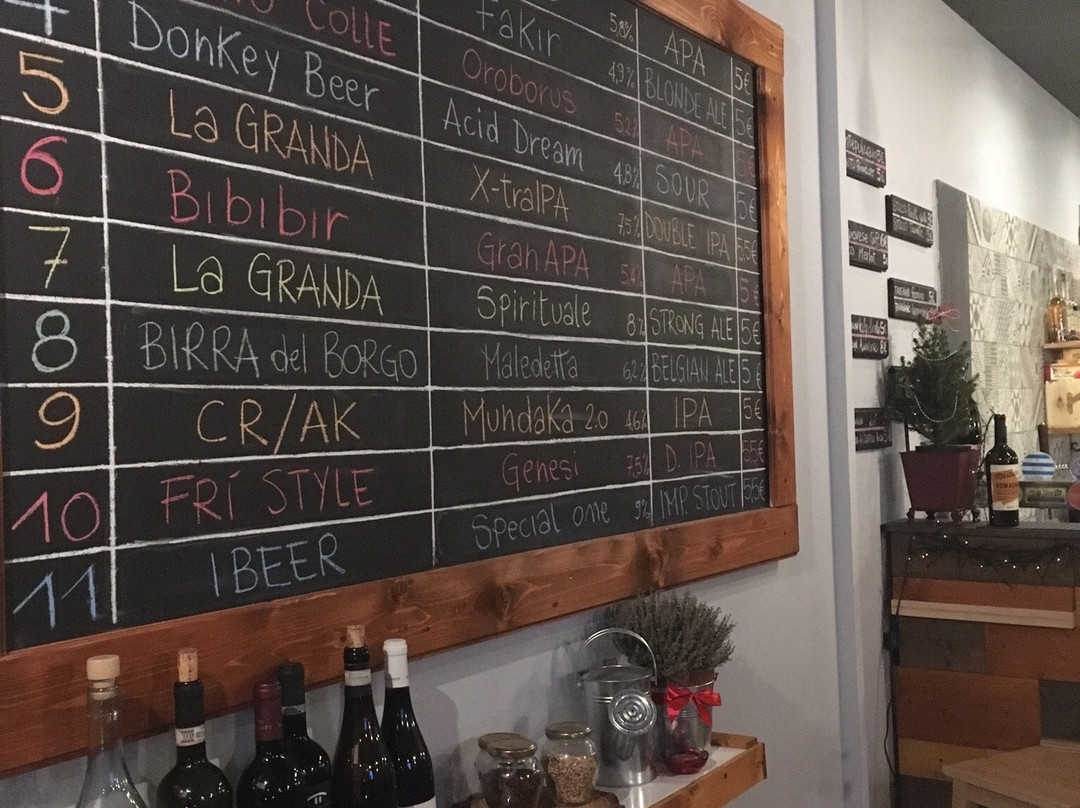 5,8% APA 5€
Fakir 4,9% BLONDE ALE 5€
COLLE Oroborus 5,2% APA 5€
4 Donkey Beer Acid Dream 4,8% SOUR 5€
5 La GRANDA X-traIPA 7,5% DOUBLE IPA 5,5€
6 Bibibir Gran APA 5,4% APA 5€
7 La GRANDA Spirituale 8% STRONG ALE 5€
8 BIRRA del BORGO Maledetta 6,2% BELGIAN ALE 5€
9 CR/AK MundaKa 2.0 4,6% IPA 5€
10 FRÍ STYLE Genesi 7,5% D. IPA 5,5€
11 IBEER Special one 9% IMP STOUT 5,5€